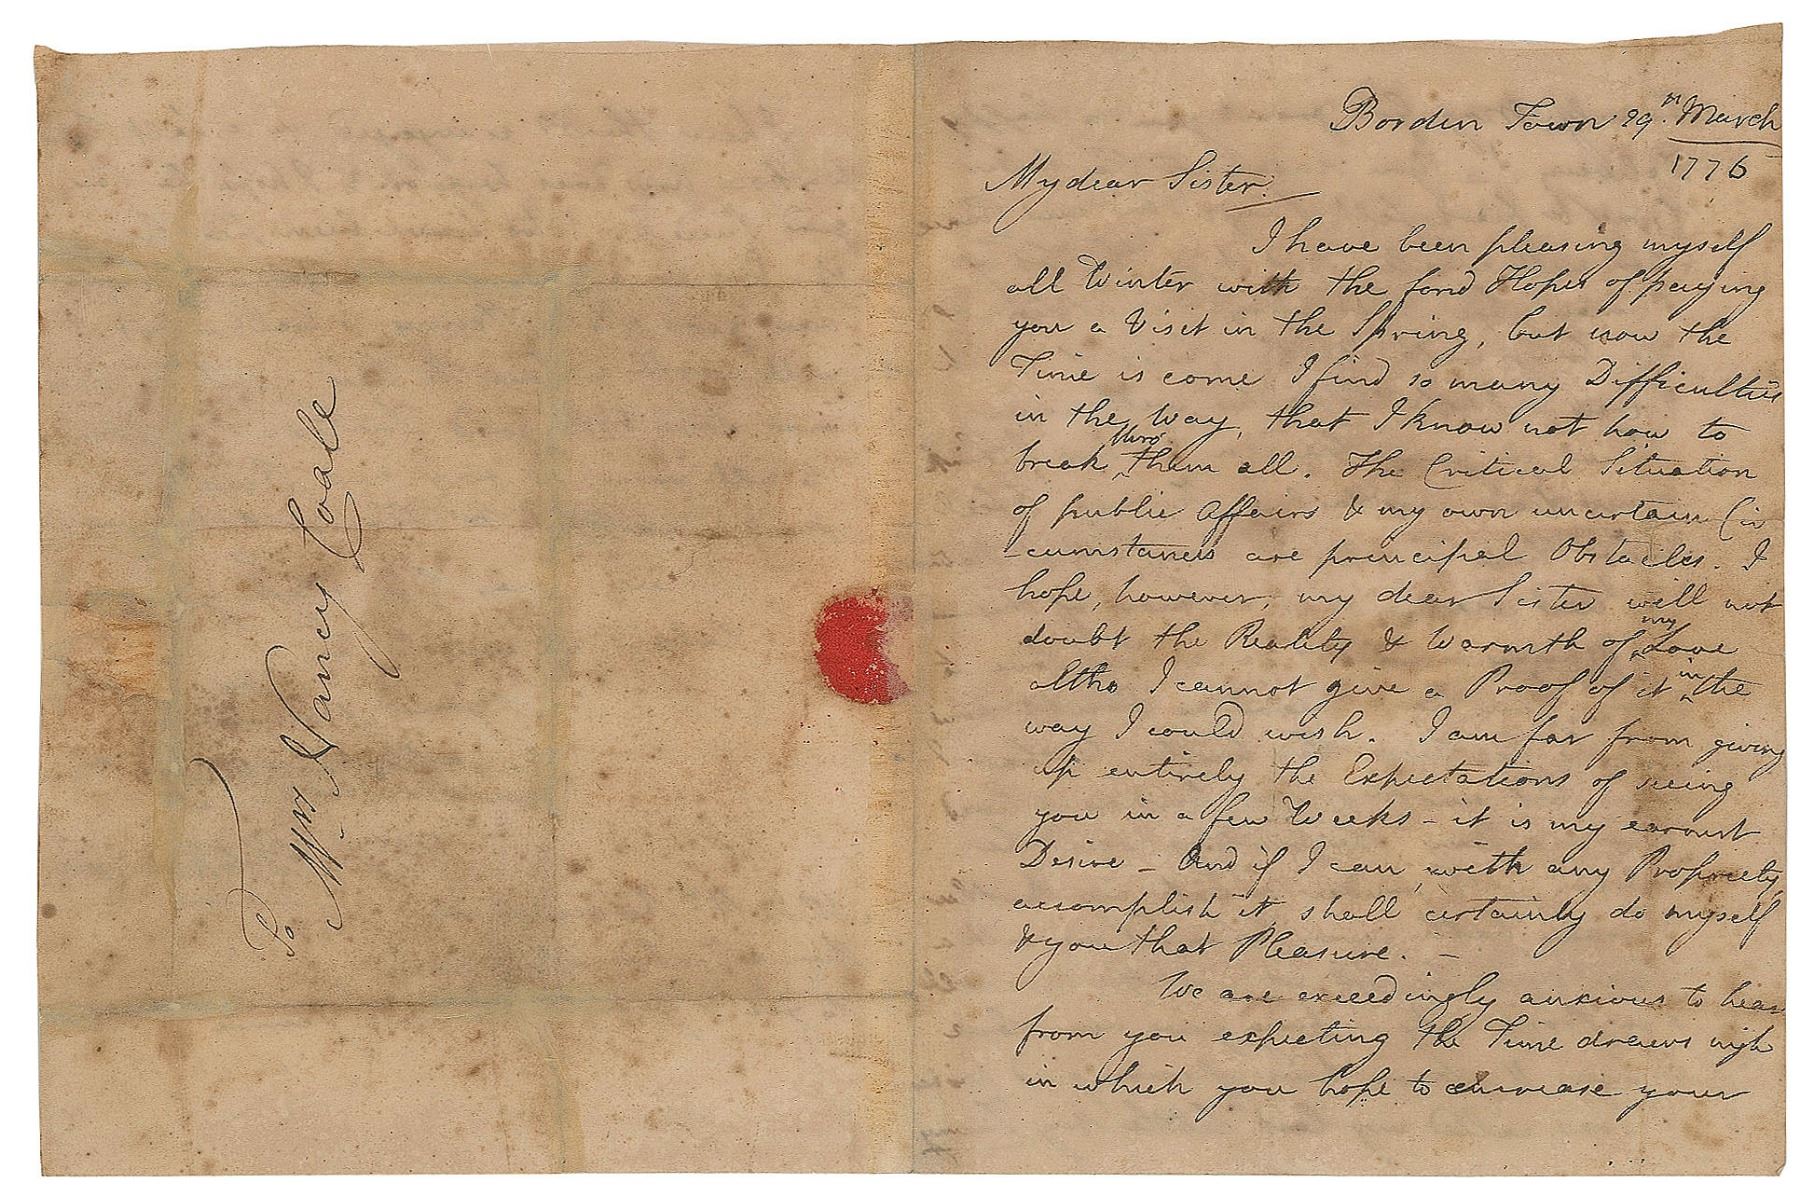 To
Mrs. Nancy Coale
Borden Town 29th. March
1776
My dear Sister.
I have been pleasing myself
all Winter with the fond Hopes of paying
you a Visit in the Spring, but now the
Time is come I find so many Difficulties
in the Way, that I know not how to
break thro' them all. The Critical Situation
of public Affairs & my own uncertain Cir
-cumstances are principal Obstacles. I
hope, however, my dear Sister will not
doubt the Reality & Warmth of my Love
altho I cannot give a Proof of it in the
way I could wish. I am far from giving
up entirely the Expectations of seeing
you in a few Weeks - it is my earnest
Desire - And if I can, with any Propriety,
accomplish it, shall certainly do myself
& you that Pleasure. -
We are exceedingly anxious to hear
from you expecting the Time draws nigh
in which you hope to encrease your